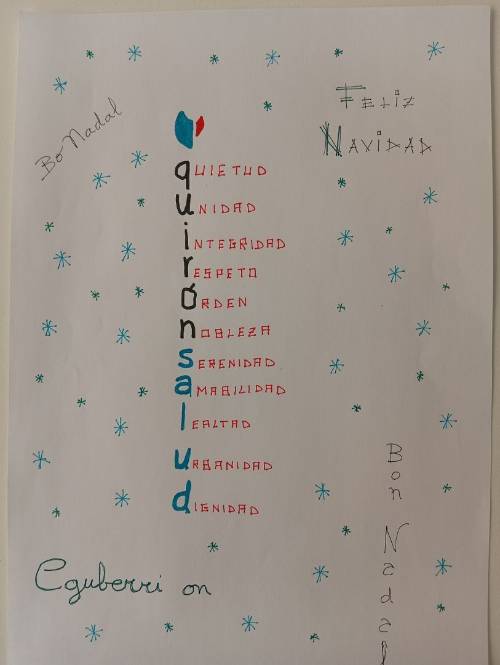 Feliz
Navidad
Bo Nadal
quietud
unidad
integridad
respeto
órden
nobleza
serenidad
amabilidad
lealtad
urbanidad
dignidad
Bon Nadal
Eguberri on